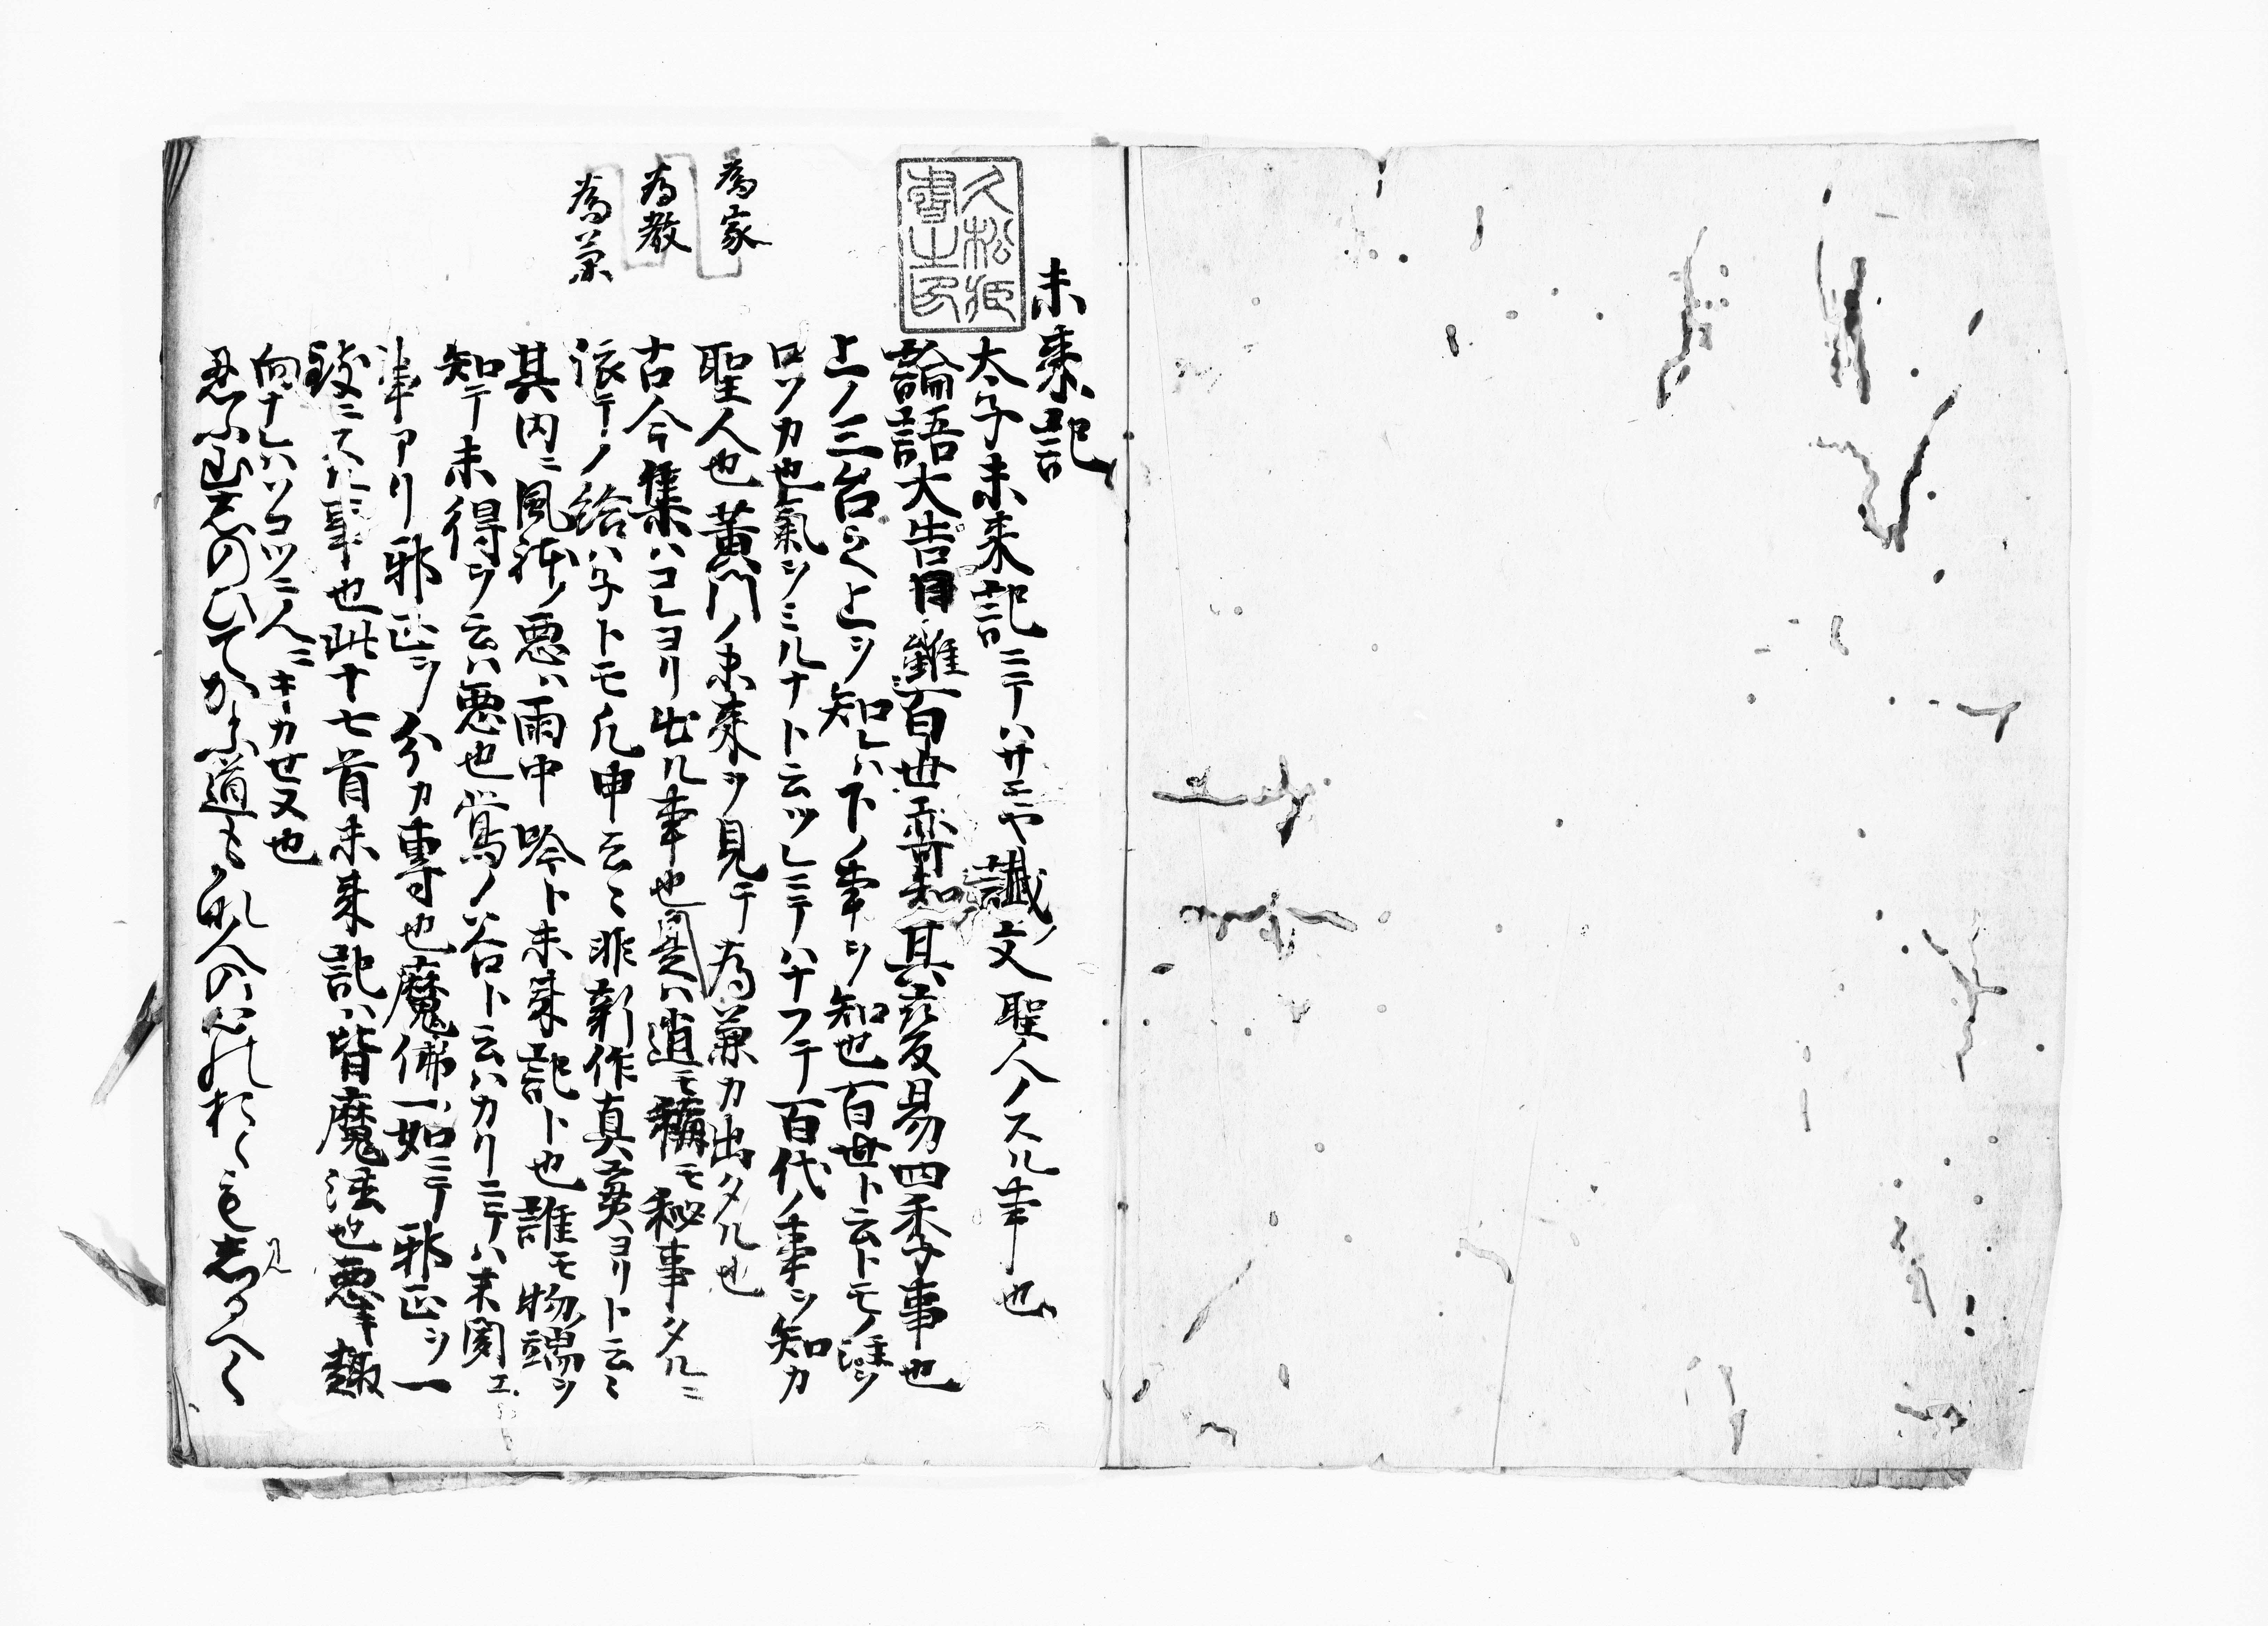 未来記
太子未来記ニテハサモヤ讖文聖人ノスル事也
論語大告曰雖百世亦可知其茲反易四季事也
上ノ三台之上ヲ知レハ下ノ事ヲ知也百世ト云トモノ
ロソカ也氣ヲミルナト云ツレニテハナフテ百代ノ事ヲ知カ
聖人也黄門ノ未来ヲ見テ為兼カ出タル也
古今集ハコレヨリ出ル事也是ハ逍モ稱モ秘事タルニ
依テノ給ハ子トモ凡申云々非新作真実ヨリト云々
其内ニ風躰ノ悪ハ雨中吟ト未来記ト也誰モ物端ヲ
知テ未得ヲ云ハ悪也鶯ノ谷ト云ハカリニテハ未聞エ
事アリ邪正ヲ分カ専也魔佛一如ニテ邪正ヲ一
致ニスル事也此十七首未来記ハ皆魔法也悪事趣
向ナレハツヨツニ人ニキカせヌ也
忍ふ山しのひてかよふ道も哉人の心のおくも
為家
為教
為兼